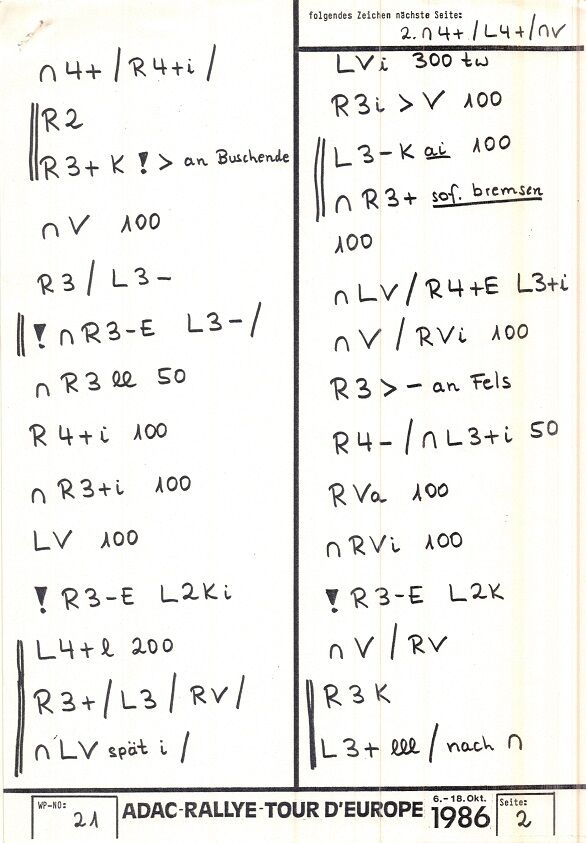 folgendes Zeichen nächste Seite:
2. ∩ 4+ / L4+ / ∩V
∩ 4+ / R4+i /
R2
R3+ K ! > an Buschende
∩ V 100
R3 / L3-
! ∩ R3-E L3- /
∩ R3 ll 50
R 4+i 100
∩ R3+i 100
LV 100
! R3-E L2Ki
L4+l 200
R3+ / L3 / RV /
∩ LV spät i /
LVi 300 tw
R3i > V 100
L3-K ai 100
∩ R3+ sof. bremsen
100
∩ LV / R4+E L3+i
∩ V / RVi 100
R3 > - an Fels
R4- / ∩ L3+i 50
RVa 100
∩ RVi 100
! R3-E L2K
∩ V / RV
R3K
L3+ lll / nach ∩
WP-NO: 21
ADAC-RALLYE-TOUR D'EUROPE
6.-18.Okt.
1986
Seite: 2